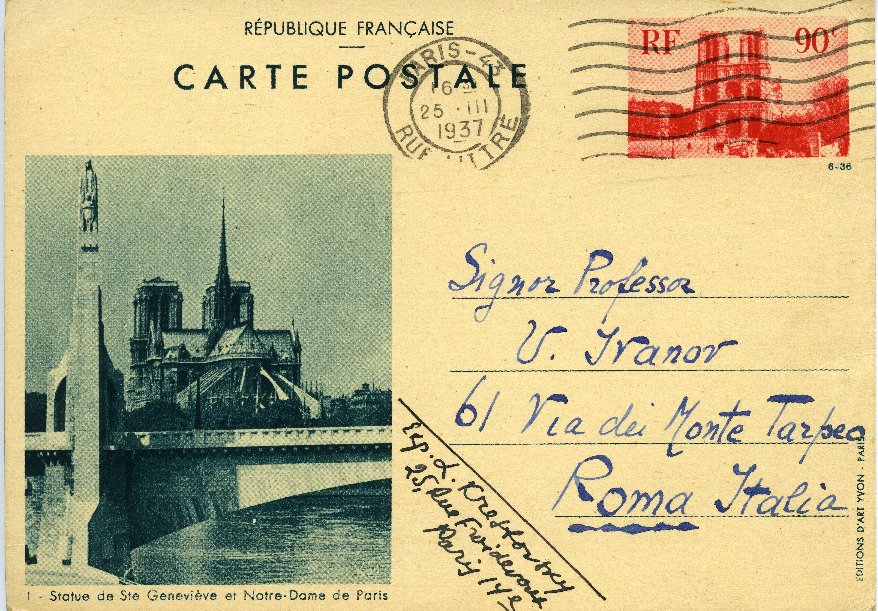 RÉPUBLIQUE FRANÇAISE
CARTE POSTALE
PARIS-43
16
25 · III
1937
RUE LITTRÉ
RF 90c
6-36
Signor Professor
V. Ivanov
61 Via dei Monte Tarpeo
Roma Italia
Exp. L.
25, Rue Froidevaux
Paris 14e
1 - Statue de Ste Geneviève et Notre-Dame de Paris
EDITIONS D'ART YVON - PARIS